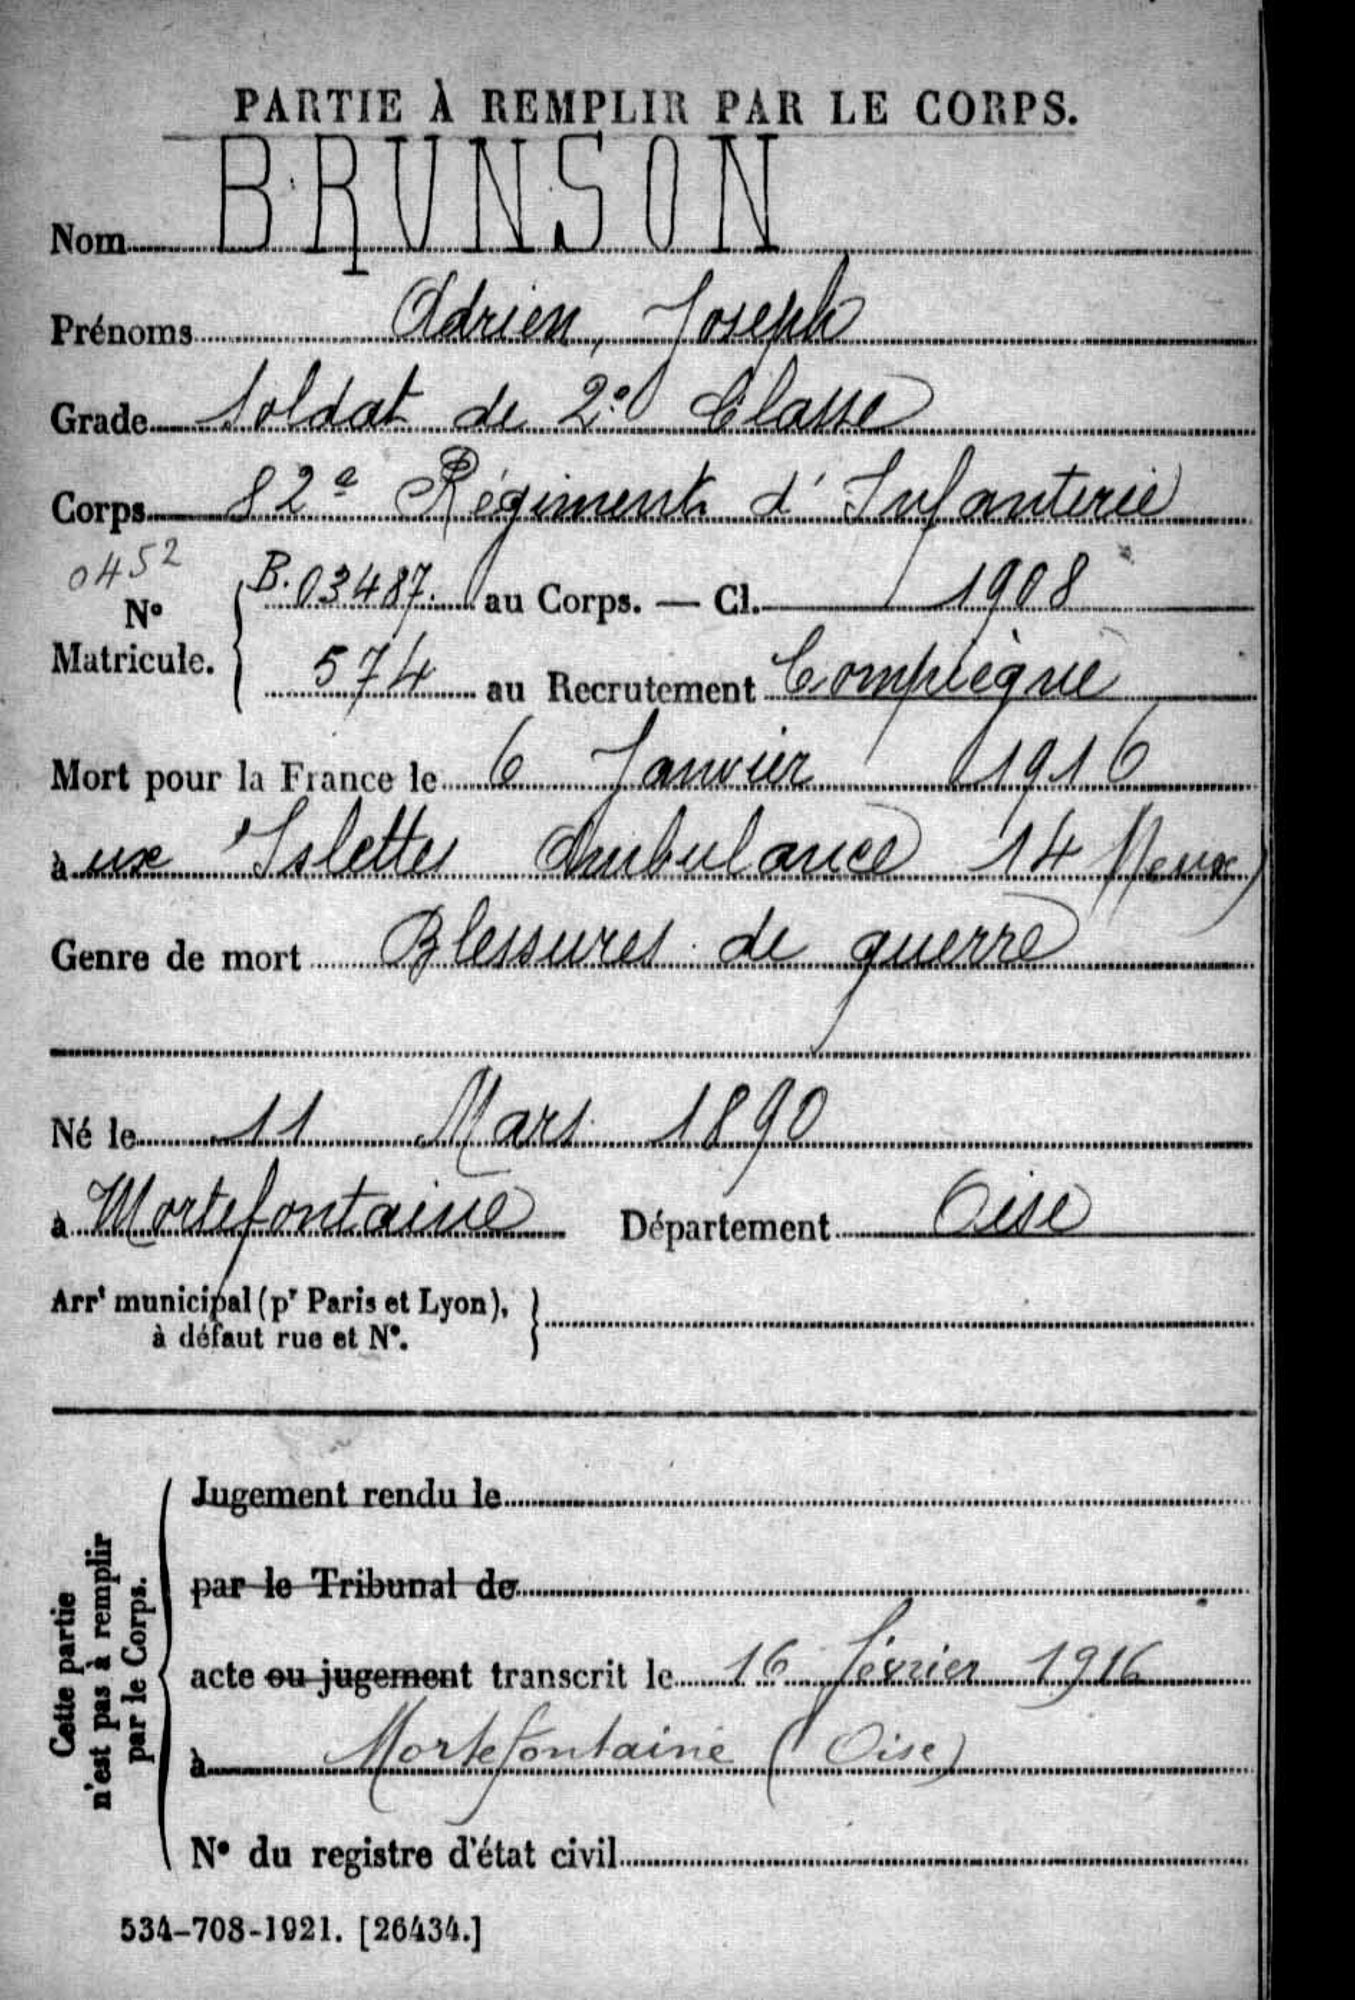 PARTIE À REMPLIR PAR LE CORPS.
Nom BRUNSON
Prénoms Adrien, Joseph
Grade Soldat de 2e Classe
Corps 82e Régiment d'Infanterie
0452
N° Matricule. { B.03487. au Corps. — Cl. 1908
574 au Recrutement Compiègne
Mort pour la France le 6 Janvier 1916
à ux Islettes Ambulance 14 Meuse)
Genre de mort Blessures de guerre
Né le 11 Mars 1890
à Mortefontaine Département Oise
Arrt municipal (pr Paris et Lyon), }
à défaut rue et N°.
Cette partie
n'est pas à remplir
par le Corps.
Jugement rendu le
par le Tribunal de
acte ou jugement transcrit le 16 février 1916
à Mortefontaine (Oise)
N° du registre d'état civil
534-708-1921. [26434.]